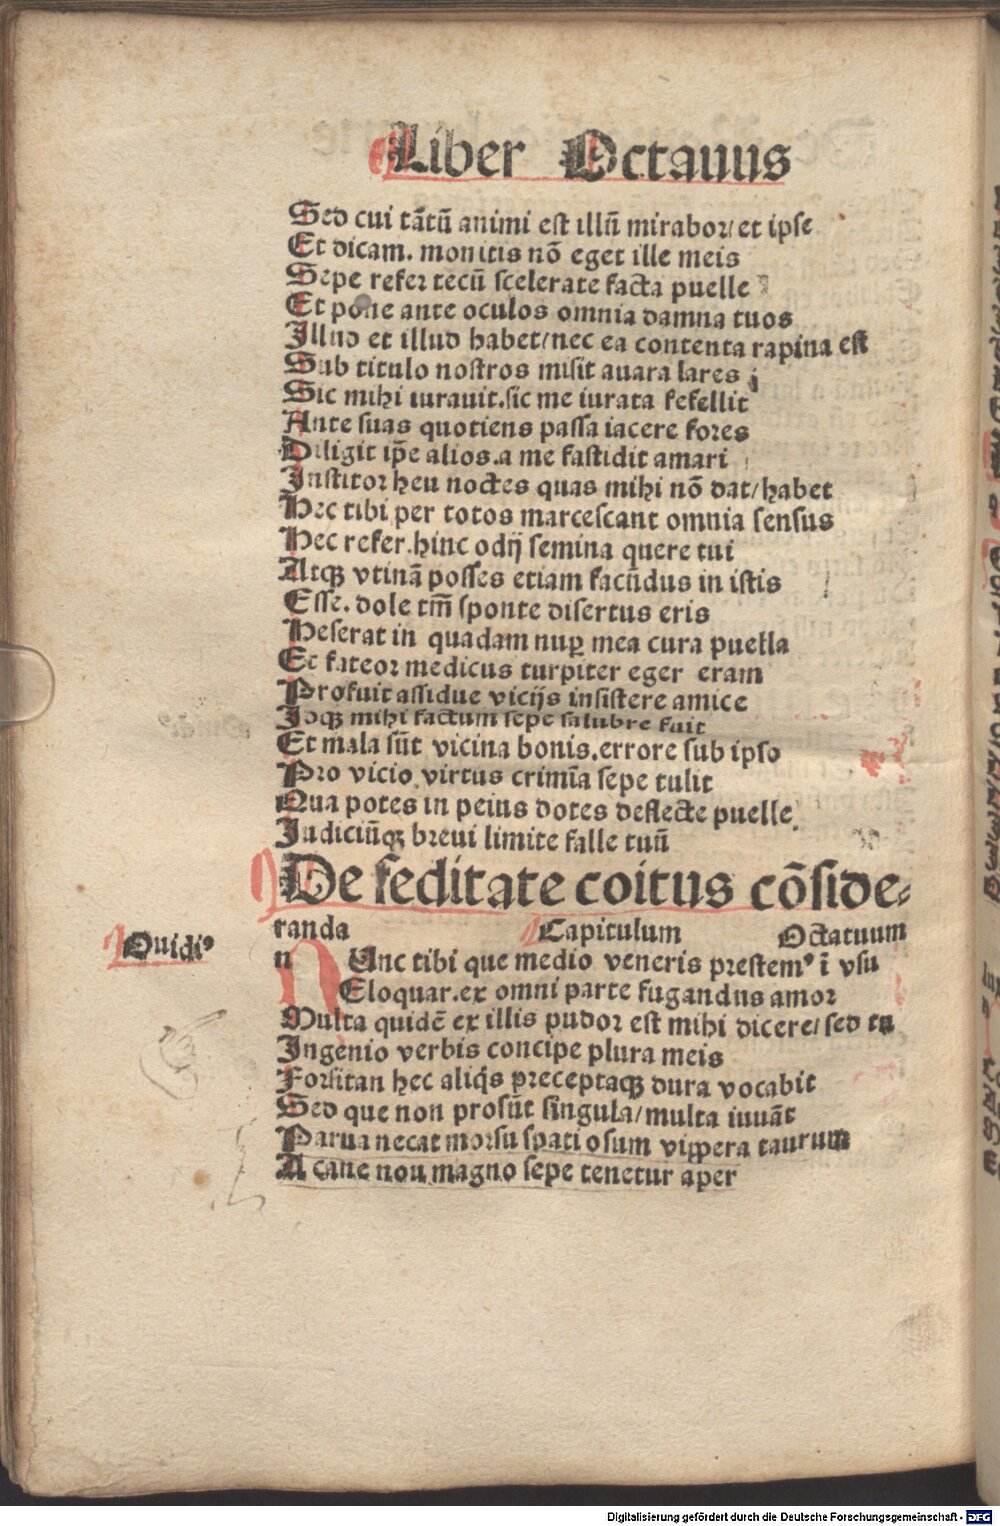 Liber Octauus
Sed cui tātū animi est illū mirabor/ et ipse
Et dicam. monitis nō eget ille meis
Sepe refer tecū scelerate facta puelle
Et pone ante oculos omnia damna tuos
Illud et illud habet/ nec ea contenta rapina est
Sub titulo nostros misit auara lares
Sic mihi iurauit. sic me iurata fefellit
Ante suas quotiens passa iacere fores
Diligit ip̄e alios. a me fastidit amari
Institor heu noctes quas mihi nō dat/ habet
Hec tibi per totos marcescant omnia sensus
Hec refer. hinc odij semina quere tui
Atqꝫ vtinā posses etiam facūdus in istis
Esse. dole tm̄ sponte disertus eris
Heserat in quadam nuꝑ mea cura puella
Et fateor medicus turpiter eger eram
Profuit assidue vicijs insistere amice
Idqꝫ mihi factum sepe salubre fuit
Et mala sūt vicina bonis. errore sub ipso
Pro vicio virtus crimīa sepe tulit
Qua potes in peius dotes deflecte puelle
Iudiciūqꝫ breui limite falle tuū
De feditate coitus cōside⸗
randa Capitulum Octauum
Ouidiꝰ
n Unc tibi que medio veneris prestemꝰ ī vsu
Eloquar. ex omni parte fugandus amor
Multa quidē ex illis pudor est mihi dicere/ sed tu
Ingenio verbis concipe plura meis
Forsitan hec aliq̇s preceptaqꝫ dura vocabit
Sed que non prosūt singula/ multa iuuāt
Parua necat morsu spatiosum viꝑpera taurum
A cane non magno sepe tenetur aper
Digitalisierung gefördert durch die Deutsche Forschungsgemeinschaft - DFG